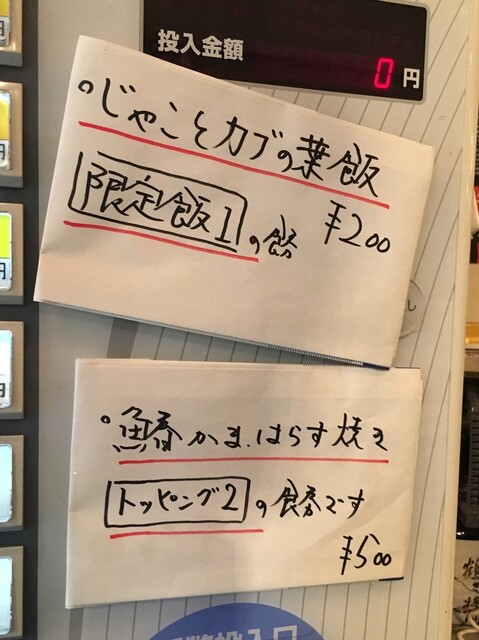 投入金額
0 円
○じゃことカブの葉飯
限定飯1 の餘 ¥200
○鰆かま、はらす焼き
トッピング2 の食券です
¥500
円
円